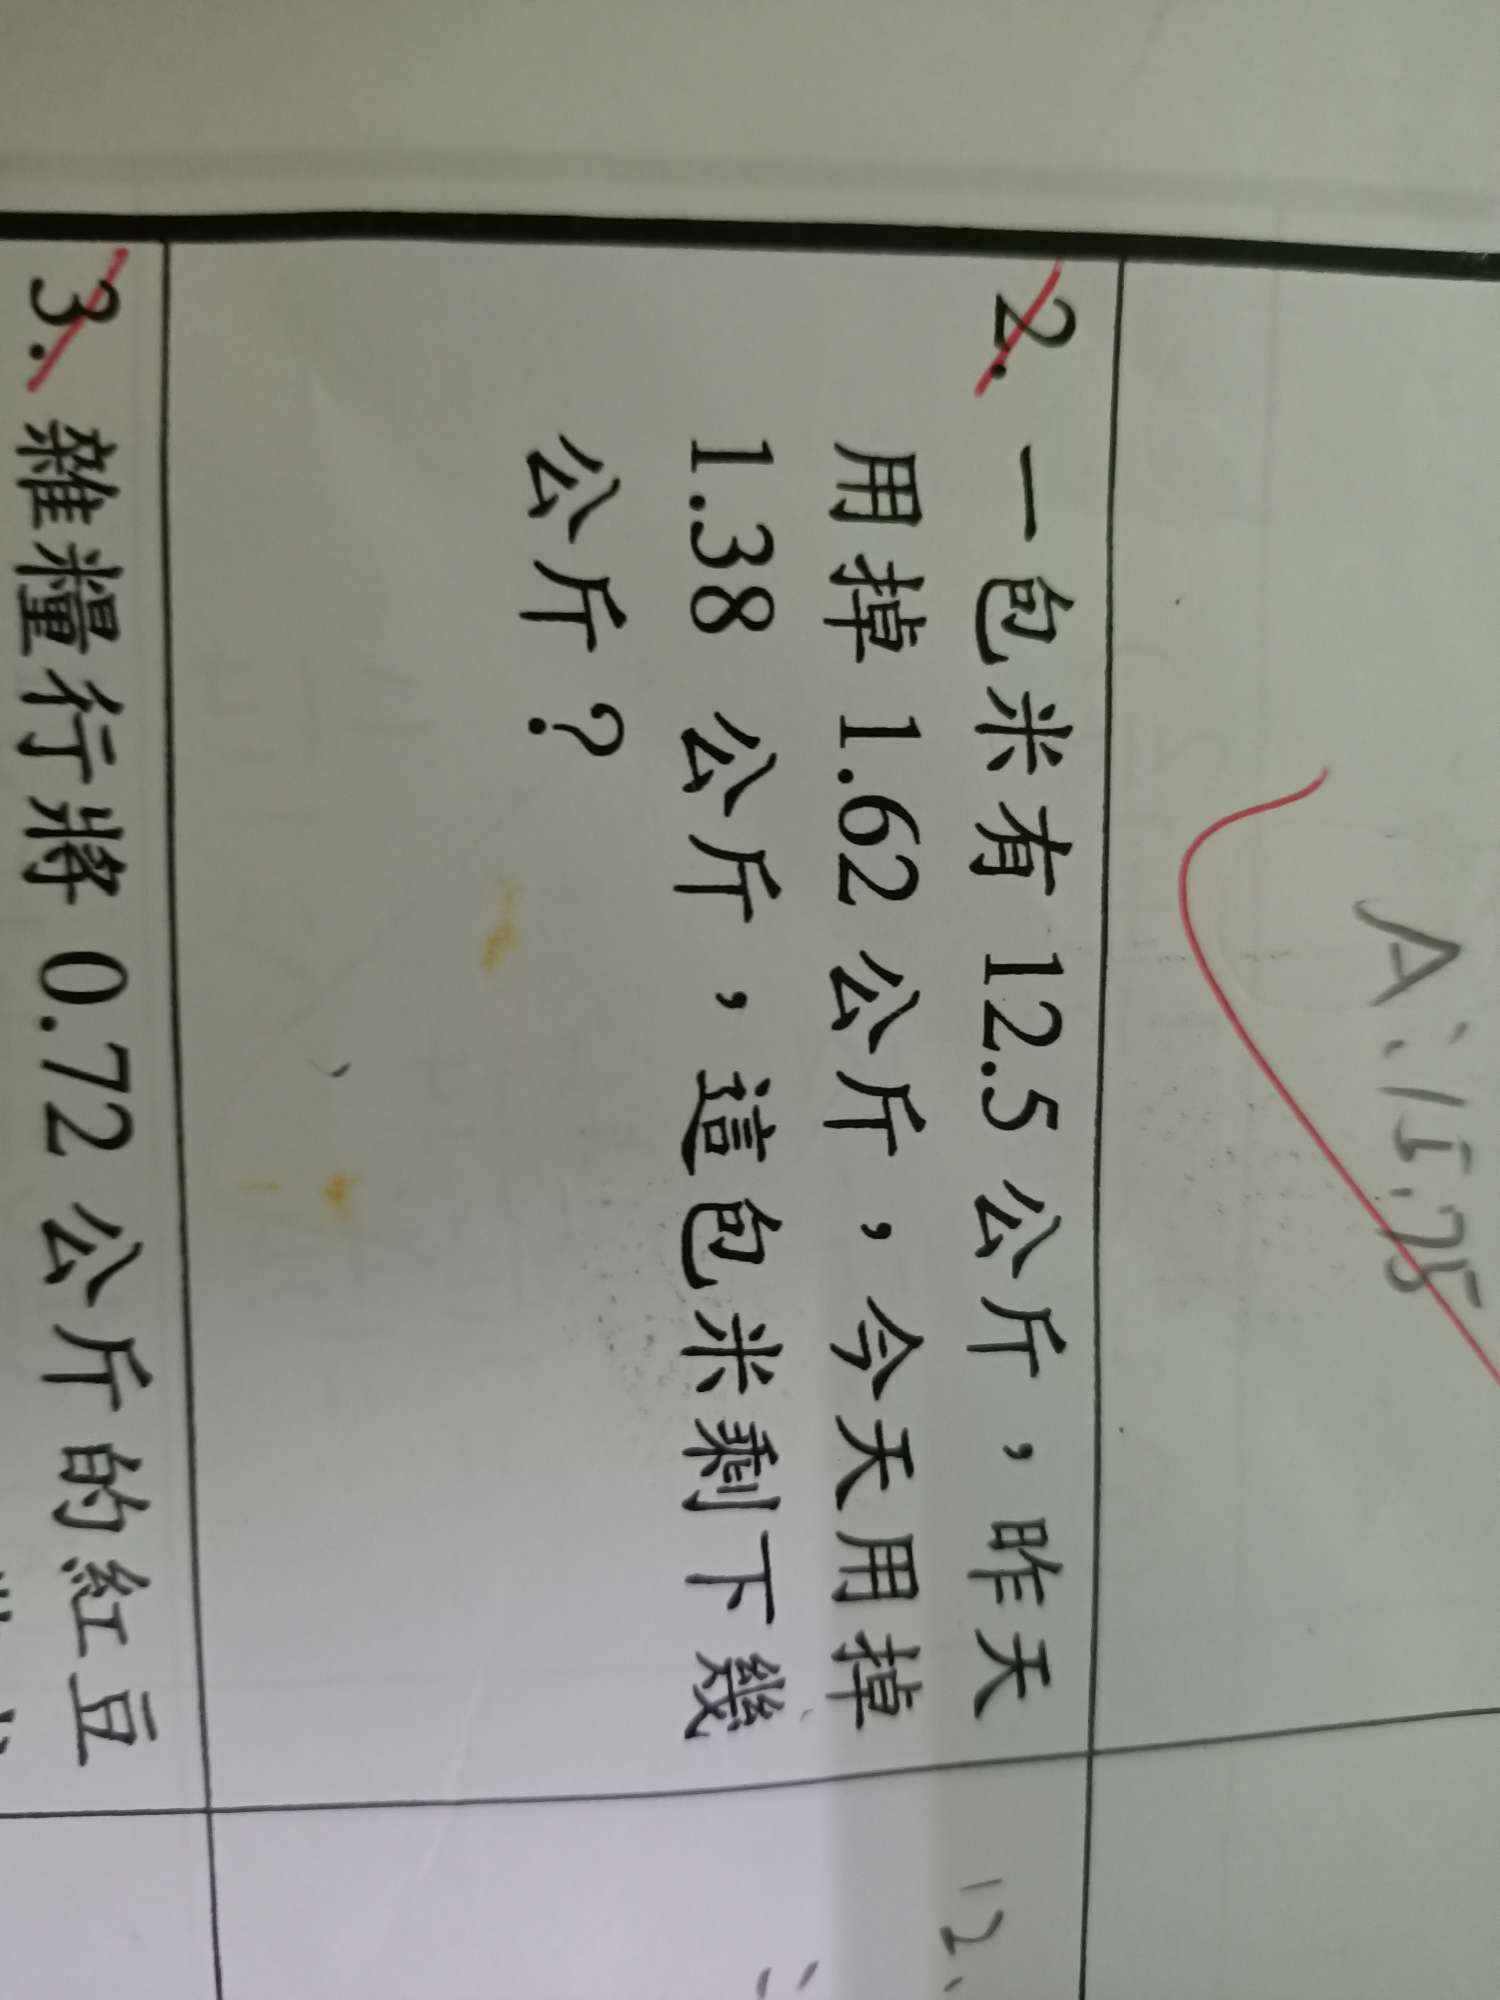 A:15.75
2. 一包米有 12.5 公斤，昨天
用掉 1.62 公斤，今天用掉
1.38 公斤，這包米剩下幾
公斤？
12.
3. 雜糧行將 0.72 公斤的紅豆